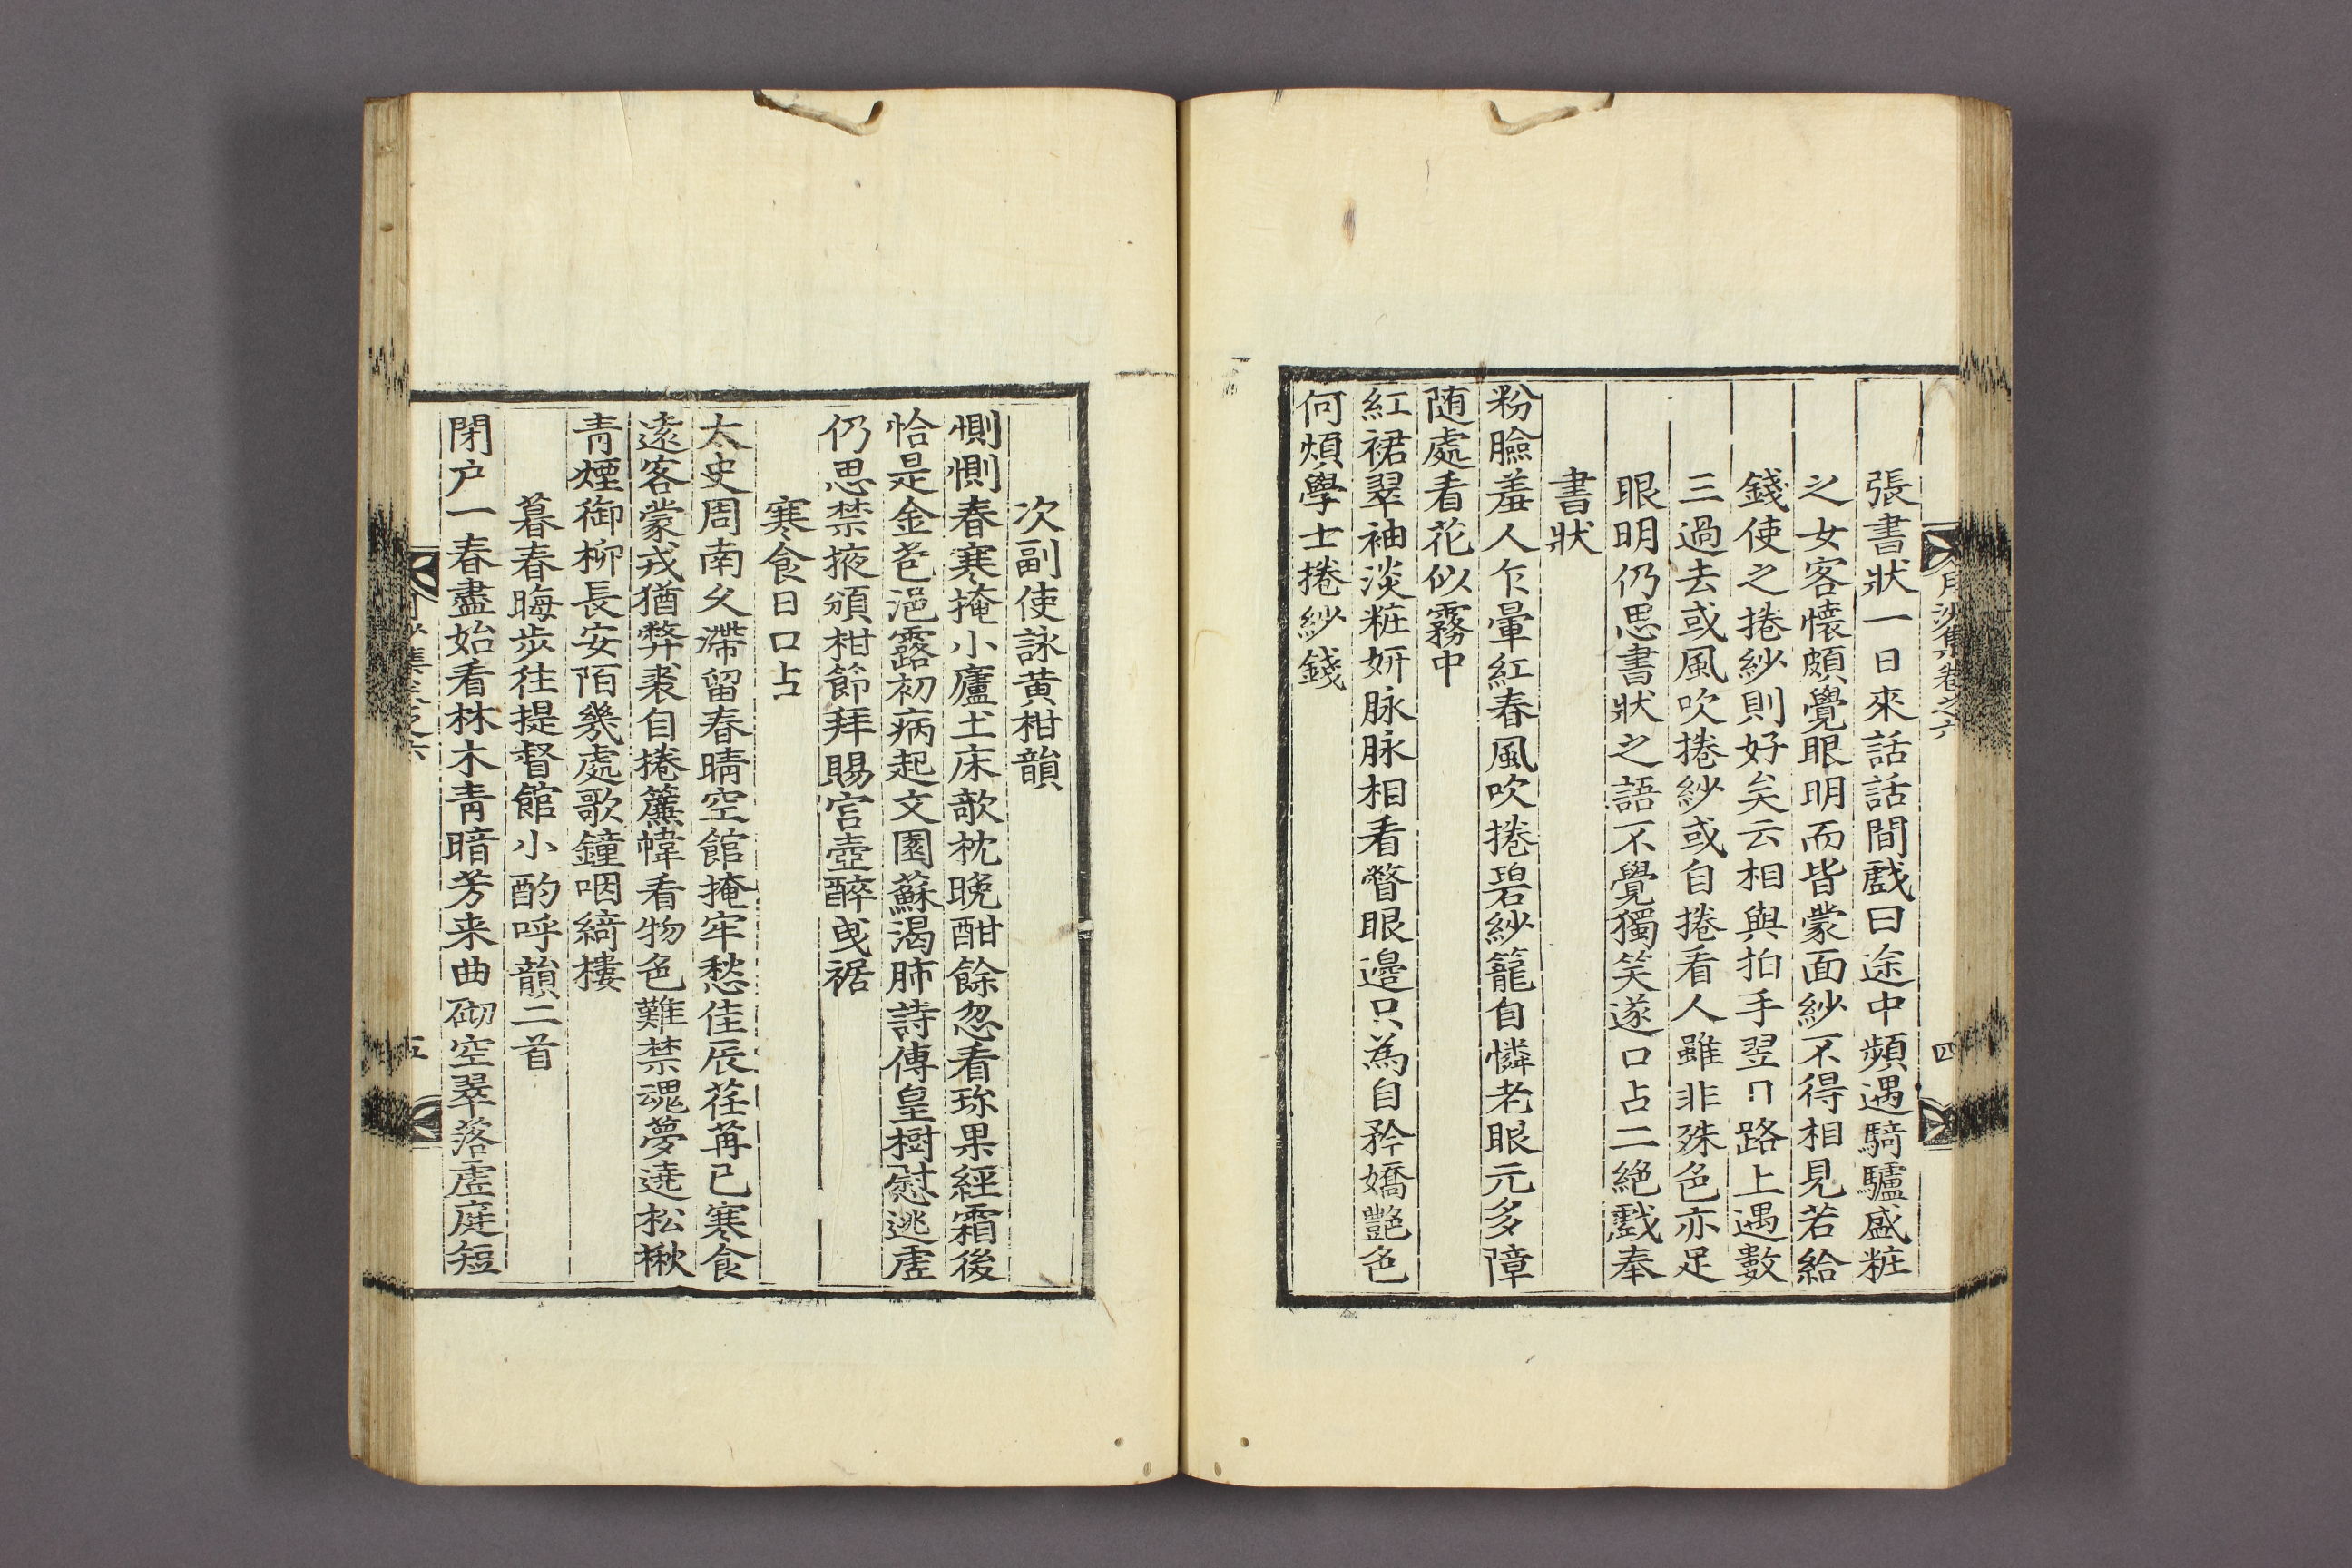 月沙集卷之六
四
張書狀一日來話話間戲曰途中頻遇騎驢盛粧
之女客懷頗覺眼明而皆蒙面紗不得相見若給
錢使之捲紗則好矣云相與拍手翌日路上遇數
三過去或風吹捲紗或自捲看人雖非殊色亦足
眼明仍思書狀之語不覺獨笑遂口占二絶戲奉
書狀
粉臉羞人乍暈紅春風吹捲碧紗籠自憐老眼元多障
随處看花似霧中
紅裙翠袖淡粧妍脉脉相看瞥眼邊只為自矜嬌艶色
何煩學士捲紗錢
次副使詠黃柑韻
惻惻春寒掩小廬土床欹枕晚酣餘忽看珎果經霜後
恰是金苞浥露初病起文園蘇渴肺詩傳皇樹慰逃虛
仍思禁掖頒柑節拜賜宮壺醉曵裾
寒食日口占
太史周南久滯留春晴空館掩牢愁佳辰荏苒已寒食
遠客蒙戎猶弊裘自捲簾幃看物色難禁魂夢遶松楸
青煙御柳長安陌幾處歌鐘咽綺樓
暮春晦步往提督館小酌呼韻二首
閉户一春盡始看林木青暗芳来曲砌空翠落虛庭短
月沙集卷之六
五